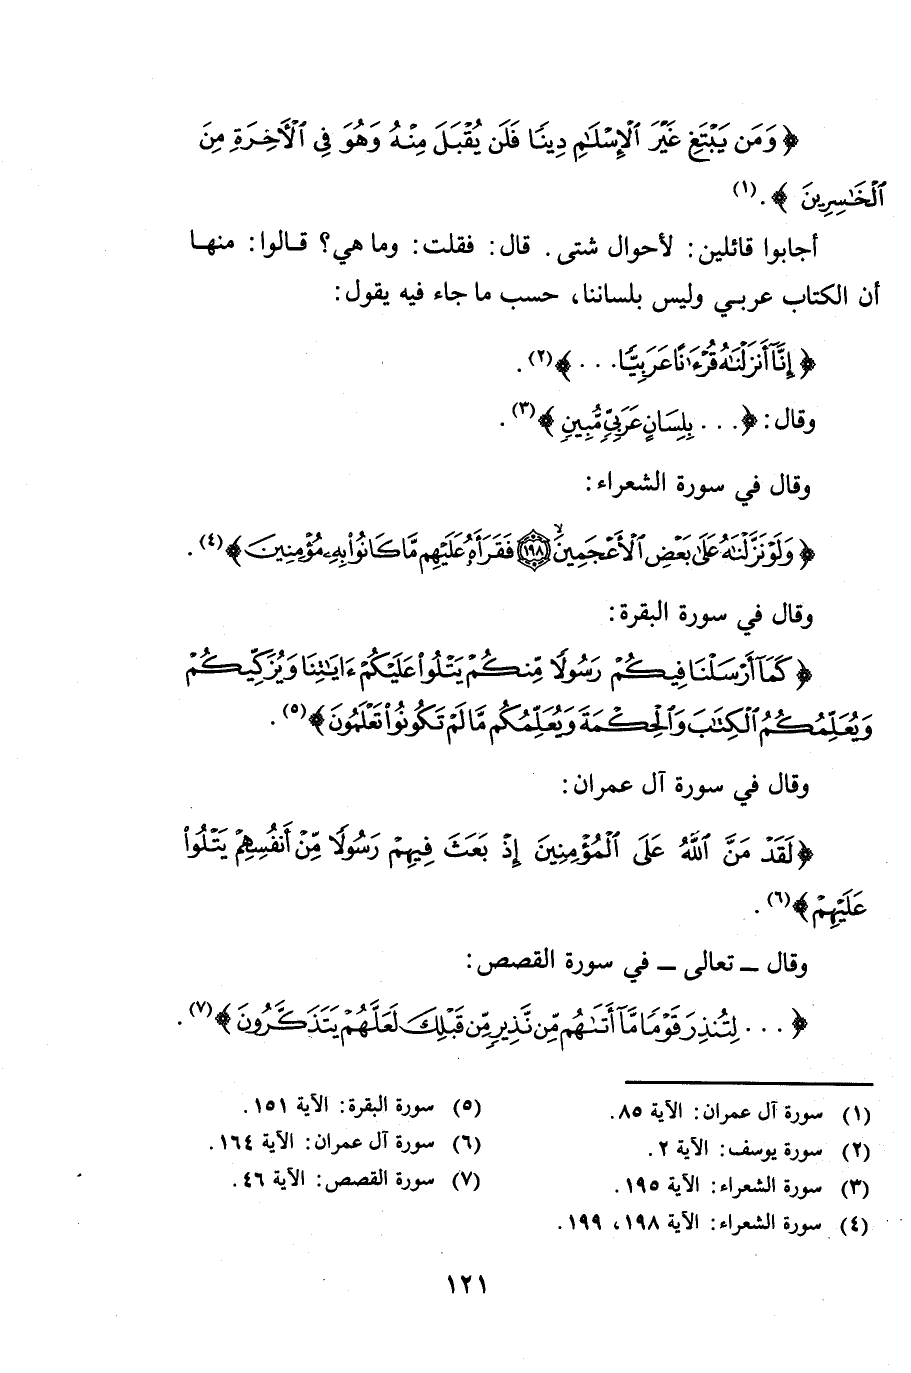 ﴿ وَمَن يَبْتَغِ غَيْرَ ٱلْإِسْلَٰمِ دِينًا فَلَن يُقْبَلَ مِنْهُ وَهُوَ فِى ٱلْأَخِرَةِ مِنَ
ٱلْخَٰسِرِينَ ﴾ .(١)
أجابوا قائلين: لأحوال شتى. قال: فقلت: وما هي؟ قالوا: منها
أن الكتاب عربي وليس بلساننا، حسب ما جاء فيه يقول:
﴿ إِنَّآ أَنزَلْنَٰهُ قُرْءَٰنًا عَرَبِيًّا . . . ﴾(٢) .
وقال: ﴿ . . . بِلِسَانٍ عَرَبِىٍّ مُّبِينٍ ﴾(٣) .
وقال في سورة الشعراء:
﴿ وَلَوْ نَزَّلْنَٰهُ عَلَىٰ بَعْضِ ٱلْأَعْجَمِينَ ۙ ١٩٨ فَقَرَأَهُۥ عَلَيْهِم مَّا كَانُوا۟ بِهِۦ مُؤْمِنِينَ ﴾(٤) .
وقال في سورة البقرة:
﴿ كَمَآ أَرْسَلْنَا فِيكُمْ رَسُولًا مِّنكُمْ يَتْلُوا۟ عَلَيْكُمْ ءَايَٰتِنَا وَيُزَكِّيكُمْ
وَيُعَلِّمُكُمُ ٱلْكِتَٰبَ وَٱلْحِكْمَةَ وَيُعَلِّمُكُم مَّا لَمْ تَكُونُوا۟ تَعْلَمُونَ ﴾(٥) .
وقال في سورة آل عمران:
﴿ لَقَدْ مَنَّ ٱللَّهُ عَلَى ٱلْمُؤْمِنِينَ إِذْ بَعَثَ فِيهِمْ رَسُولًا مِّنْ أَنفُسِهِمْ يَتْلُوا۟
عَلَيْهِمْ ﴾(٦) .
وقال ـ تعالى ـ في سورة القصص:
﴿ . . . لِتُنذِرَ قَوْمًا مَّآ أَتَىٰهُم مِّن نَّذِيرٍ مِّن قَبْلِكَ لَعَلَّهُمْ يَتَذَكَّرُونَ ﴾(٧) .
(١) سورة آل عمران: الآية ٨٥.
(٢) سورة يوسف: الآية ٢.
(٣) سورة الشعراء: الآية ١٩٥.
(٤) سورة الشعراء: الآية ١٩٨، ١٩٩.
(٥) سورة البقرة: الآية ١٥١.
(٦) سورة آل عمران: الآية ١٦٤.
(٧) سورة القصص: الآية ٤٦.
١٢١